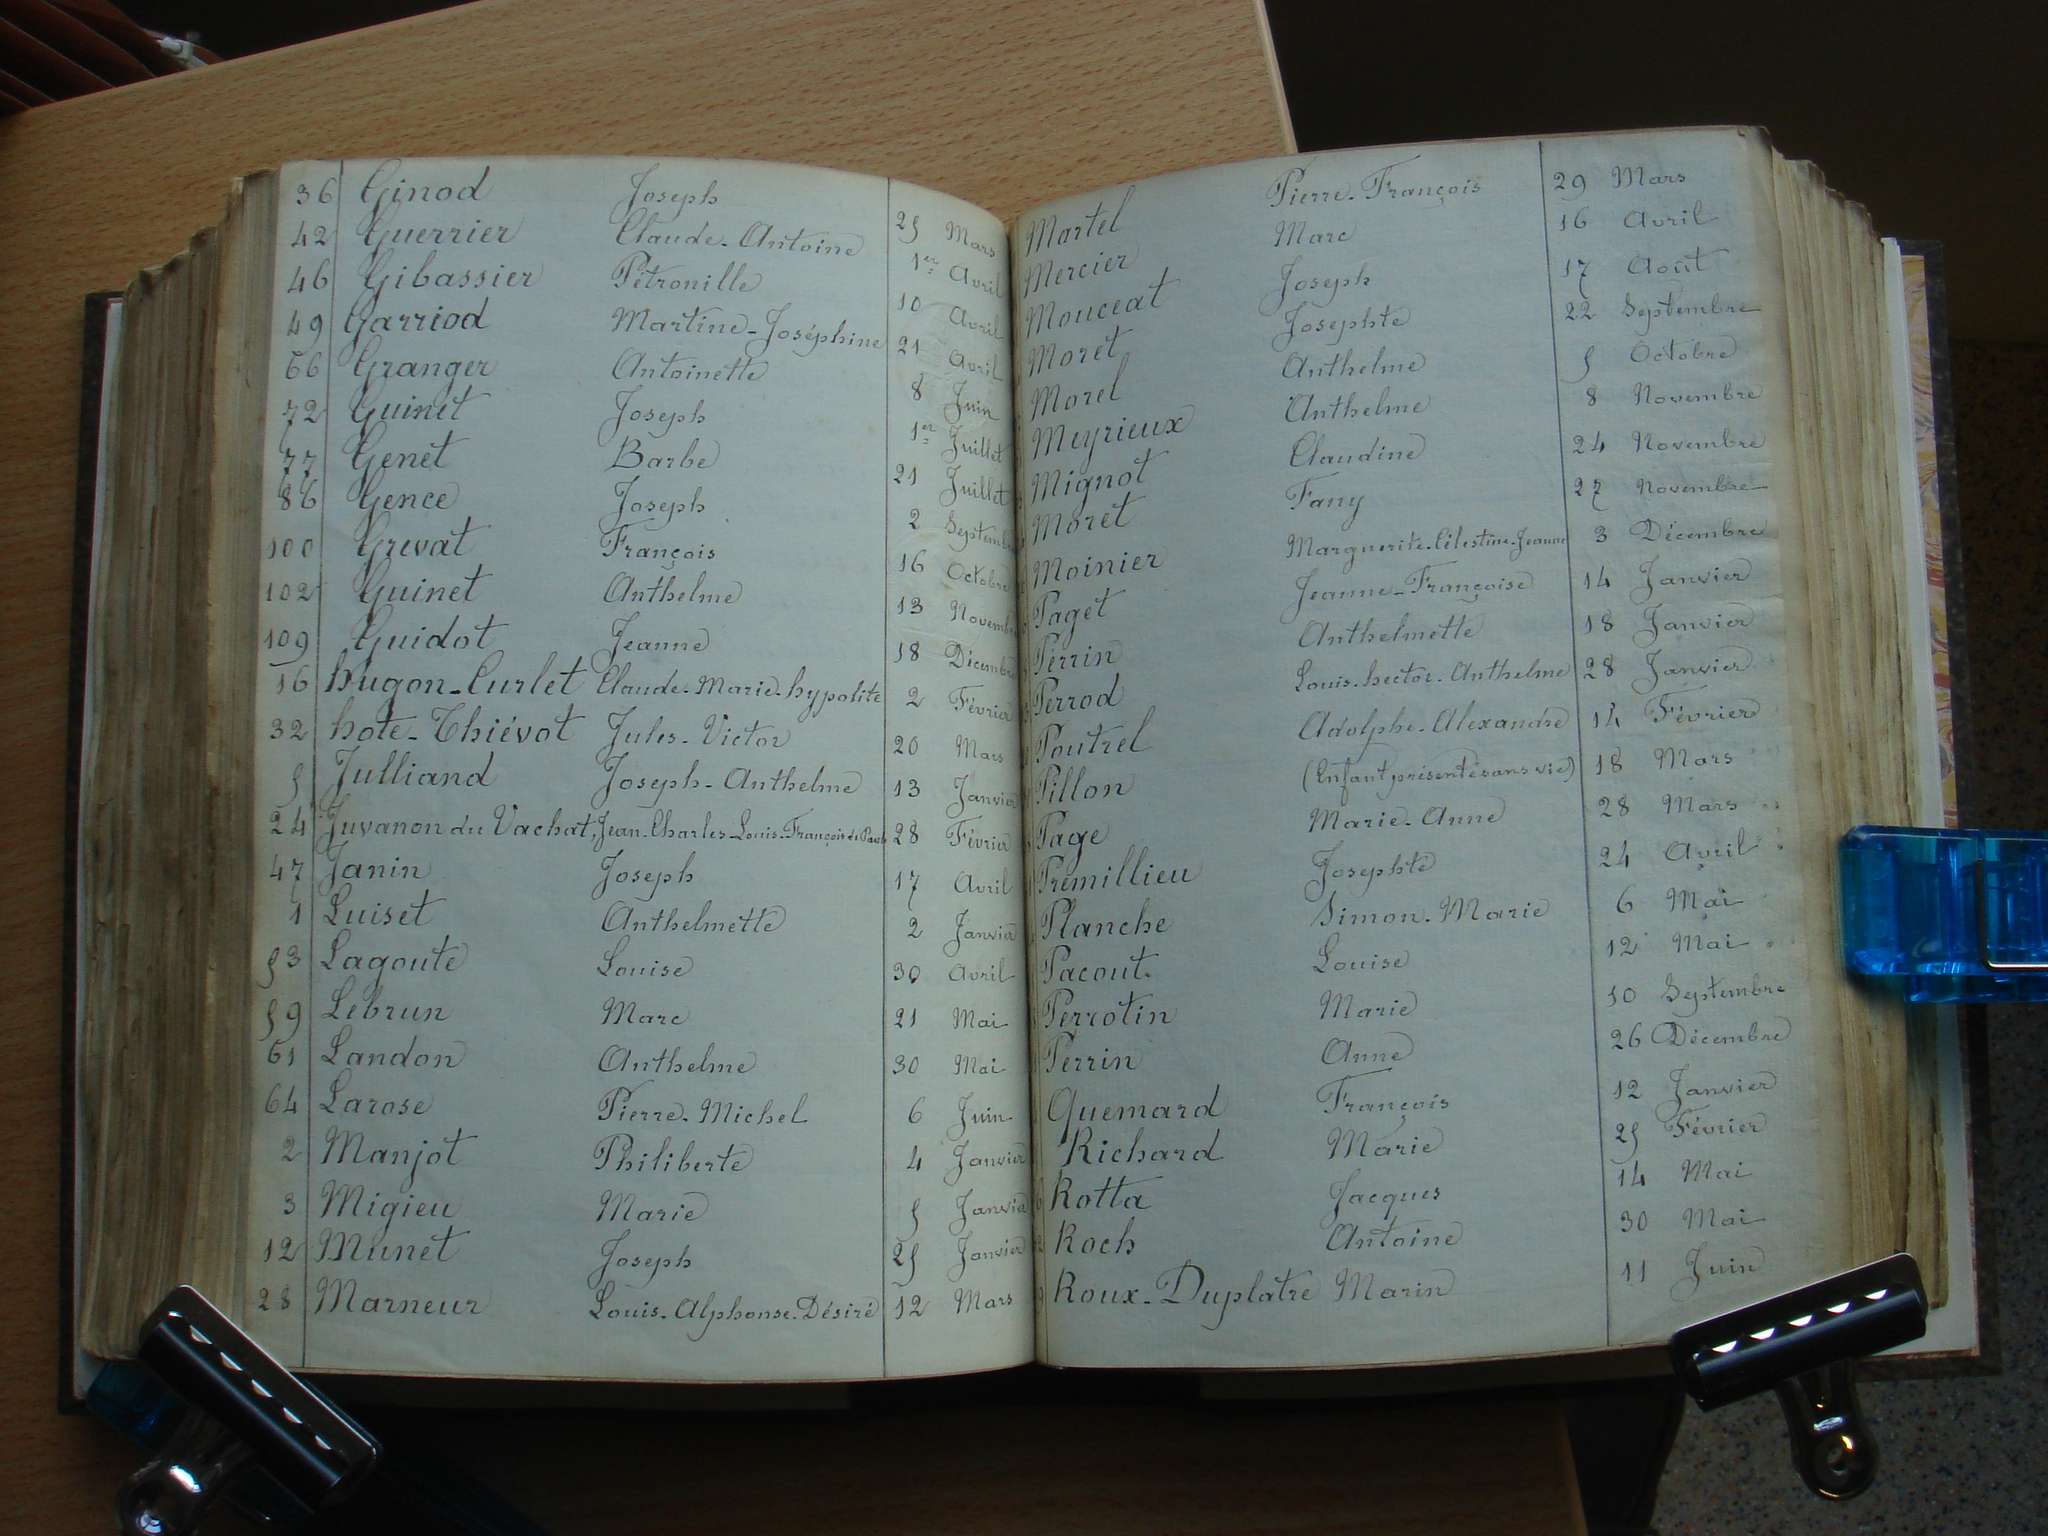 36 Ginod Joseph 25 Mars
42 Guerrier Claude-Antoine 1er Avril
46 Gibassier Pétronille 10 Avril
49 Garriod Martine-Joséphine 21 Avril
66 Granger Antoinette 8 Juin
72 Guinet Joseph 1er Juillet
77 Genet Barbe 21 Juillet
86 Gence Joseph 2 Septembre
100 Grevat François 16 Octobre
102 Guinet Anthelme 13 Novembre
109 Guidot Jeanne 18 Décembre
16 Hugon-Curlet Claude-Marie-hypolite 2 Février
32 Hote-Thiévot Jules-Victor 20 Mars
5 Julliand Joseph-Anthelme 13 Janvier
24 Juvanon du Vachat, Jean-Charles-Louis-François de Paule 28 Février
47 Janin Joseph 17 Avril
1 Luiset Anthelmette 2 Janvier
53 Lagoute Louise 30 Avril
59 Lebrun Marc 21 Mai
61 Landon Anthelme 30 Mai
64 Larose Pierre-Michel 6 Juin
2 Manjot Philiberte 4 Janvier
3 Migieu Marie 5 Janvier
12 Munet Joseph 25 Janvier
28 Marneur Louis-Alphonse-Désiré 12 Mars
Martel Pierre-François 29 Mars
Mercier Marc 16 Avril
Mouceat Joseph 17 Août
Moret Josephte 22 Septembre
Morel Anthelme 5 Octobre
Meyrieux Anthelme 8 Novembre
Mignot Claudine 24 Novembre
Moret Fany 27 Novembre
Moinier Marguerite-Célestine-Jeanne 3 Décembre
Paget Jeanne-Françoise 14 Janvier
Perrin Anthelmette 18 Janvier
Perrod Louis-hector-Anthelme 28 Janvier
Poutrel Adolphe-Alexandre 14 Février
Pillon (Enfant présenté sans vie) 18 Mars
Page Marie-Anne 28 Mars
Premillieu Josephte 24 Avril
Planche Simon-Marie 6 Mai
Pacout. Louise 12 Mai
Perrotin Marie 10 Septembre
Perrin Anne 26 Décembre
Quemard François 12 Janvier
Richard Marie 25 Février
Rotta Jacques 14 Mai
Roch Antoine 30 Mai
Roux-Duplatre Marin 11 Juin